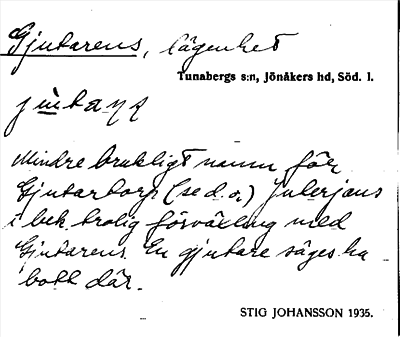 Gjutarens, lägenhet
Tunabergs s:n, Jönåkers hd, Söd. l.
Mindre brukligt namn för
Gjutartorp (se d. o.)
i bek. trolig förväxling med
Gjutarens. En gjutare säges ha
bott där.
STIG JOHANSSON 1935.